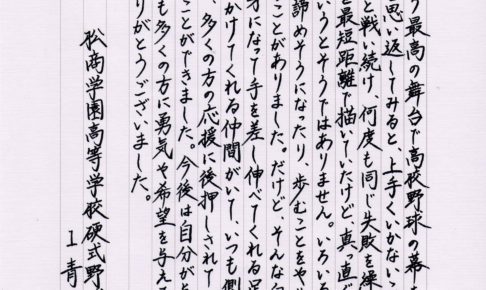 う最高の舞台で高校野球の幕を
思い返してみると、上手くいかない
と戦い続け、何度も同じ失敗を繰
を最短距離で描いていたけど、真っ直ぐ
いうとそうではありません。いろいろ
諦めそうになったり、歩むことをや
ことがありました。だけど、そんな
才になって手を差し伸べてくれる
かけてくれる仲間がいて、いつも側
、多くの方の応援に後押しされて
ことができました。今後は自分が
も多くの方に勇気や希望を与え
りがとうございました。
松西学園高等学校硬式野
青